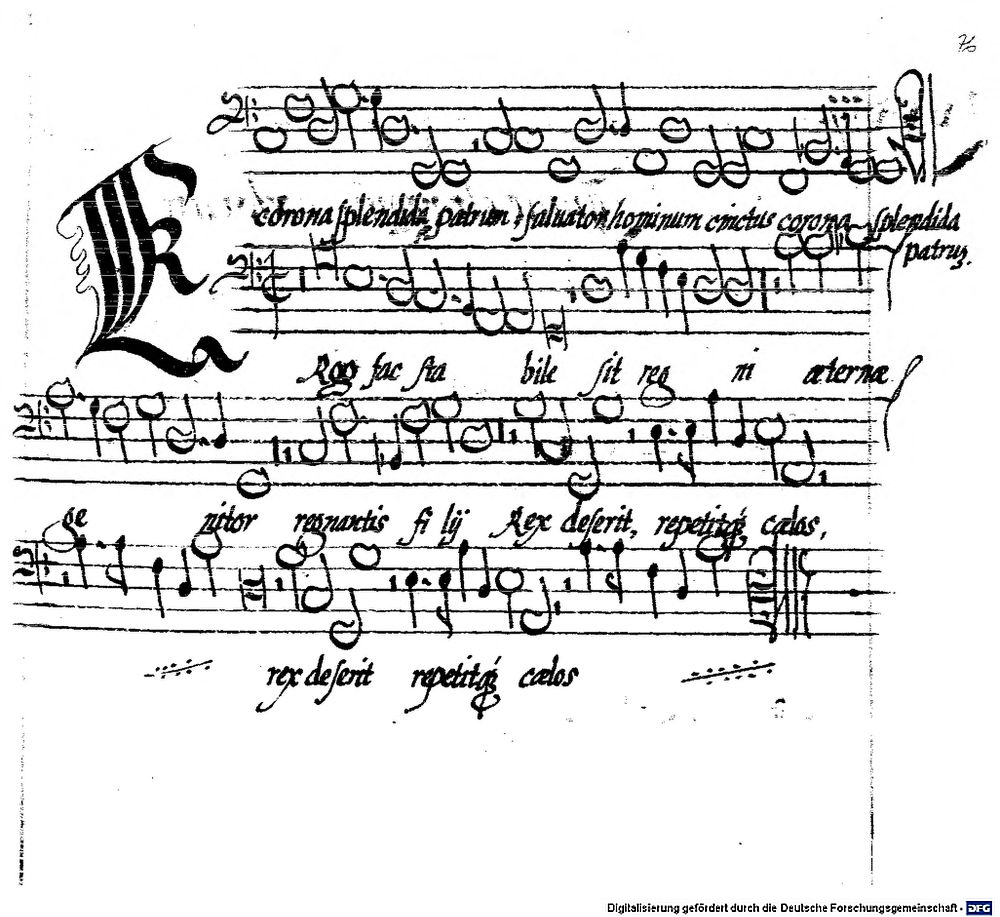 76
corona splendida patrum, saluator hominum cinctus corona splendida
patruʒ.
R
Rogo fac sta bile sit reg ni æternæ
ge nitor regnantis fi lij Rex deserit, repetitqʒ cælos,
rex deserit repetitqʒ cælos
Digitalisierung gefördert durch die Deutsche Forschungsgemeinschaft - DFG